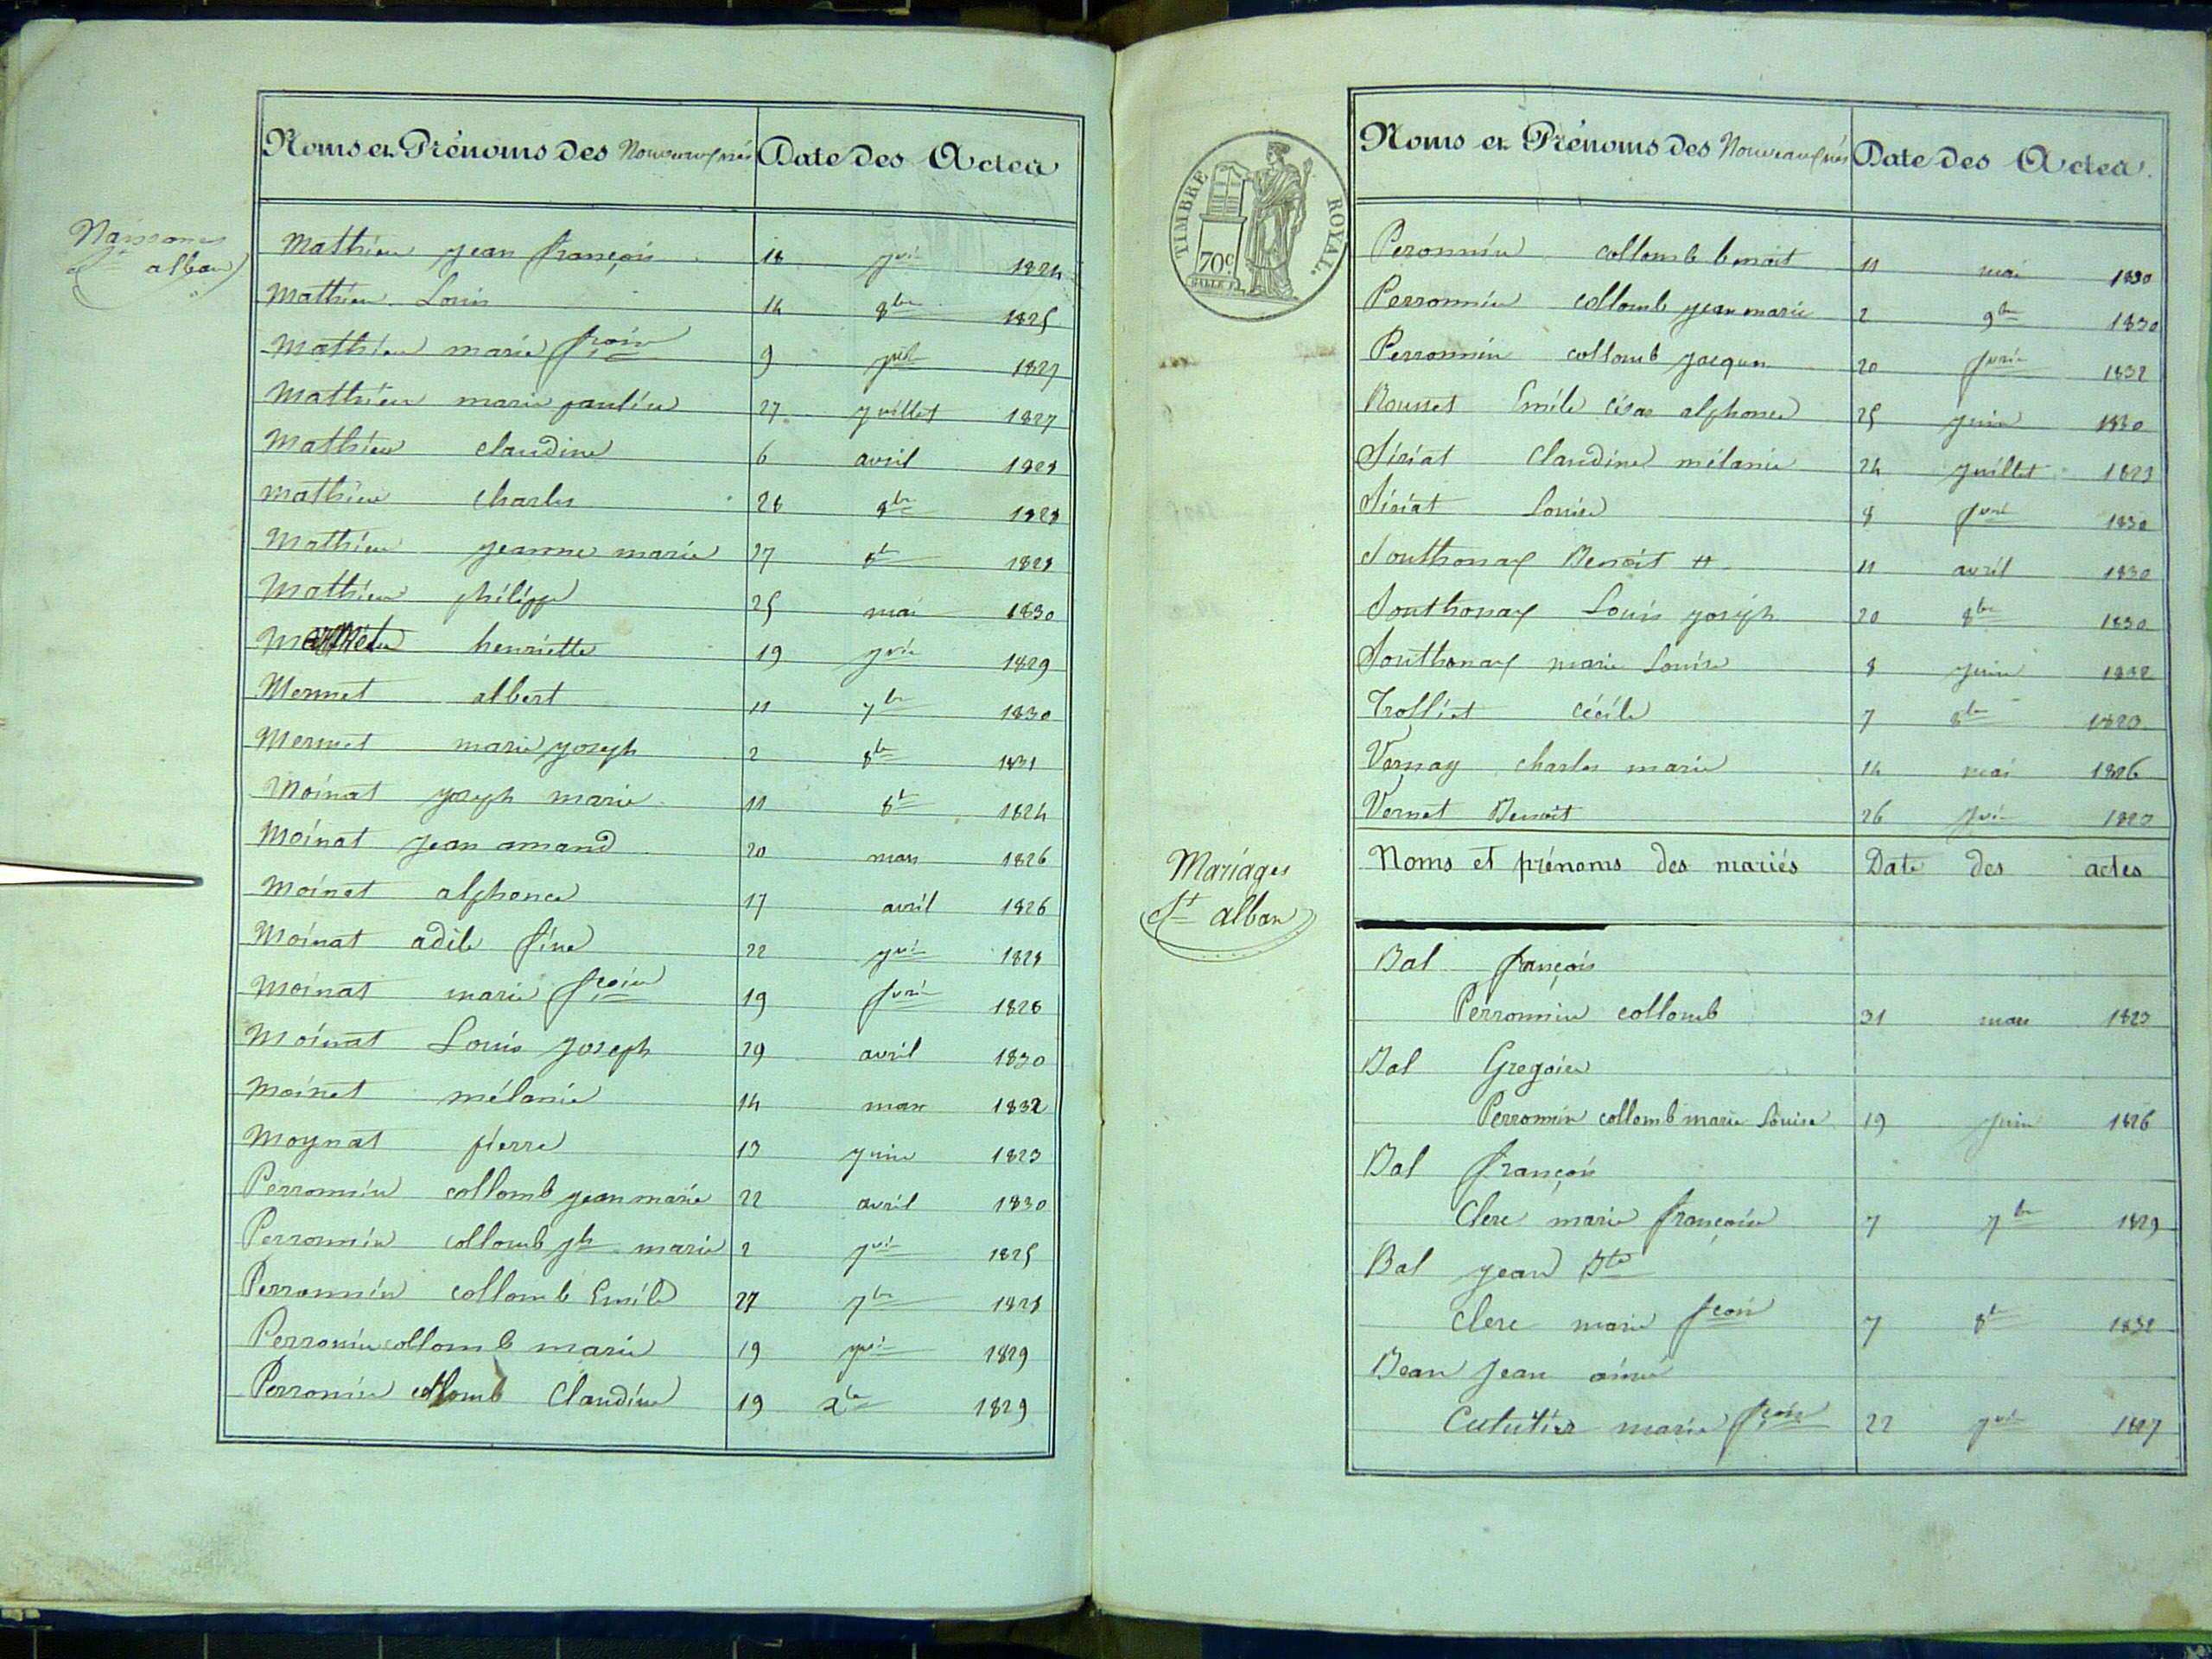 Noms et Prénoms des Nouveaux nés Date des Actes
Naissances
St alban
Mathieu jean françois 18 jvier 1824
Mathieu Louis 14 8bre 1825
Mathieu marie fçoise 9 1827
Mathieu marie pauline 27 juillet 1827
Mathieu claudine 6 avril 1828
mathieu charles 26 8bre 1828
Mathieu jeanne marie 27 8bre 1828
Mathieu philippe 25 mai 1830
henriette 19 jvier 1829
Mermet albert 11 7bre 1830
Mermet marie joseph 2 8bre 1831
Moinat joseph marie 11 8bre 1824
Moinat jean amand 20 mars 1826
Moinat alphonce 17 avril 1826
Moinat adile fine 22 jvier 1828
Moinat marie fçoise 19 fvrier 1828
Moinat Louis joseph 29 avril 1830
Moinat mélanie 14 mars 1832
Moynat pierre 13 juin 1823
Perronnin collomb jean marie 22 avril 1830
Perronnin collomb jh marie 2 jvier 1825
Perronnin collomb Emile 27 7bre 1828
Perronin collomb marie 19 jvier 1829
Perronin collomb Claudine 19 xbre 1829
TIMBRE ROYAL.
70c
Noms et Prénoms des Nouveaux nés Date des Actes.
Peronnin collomb benoit 11 mai 1830
Perronnin collomb jean marie 2 9bre 1830
Perronnin collomb jacques 20 fvrier 1832
Rousset Emile césar alphonce 25 juin 1830
Siriat Claudine mélanie 24 juillet 1823
Siriat Louise 8 fvrier 1830
Southonax Benoit # 11 avril 1830
Southonax Louis joseph 20 8bre 1830
Southonax marie Louise 8 juin 1832
Trolliet cécile 7 8bre 1823
Vernay charles marie 14 mai 1826
Vernet Benoit 26 jvier 1823
Mariages
St alban
Noms et prénoms des mariés Date des actes
Bal françois
Perronnin collomb 31 mars 1823
Bal Gregoire
Perronnin collomb marie Louise 19 juin 1826
Bal françois
Clerc marie françoise 7 7bre 1829
Bal jean Bte
Clerc marie fçoise 7 8bre 1832
Bean jean aimé
marie fçoise 22 jvier 1827